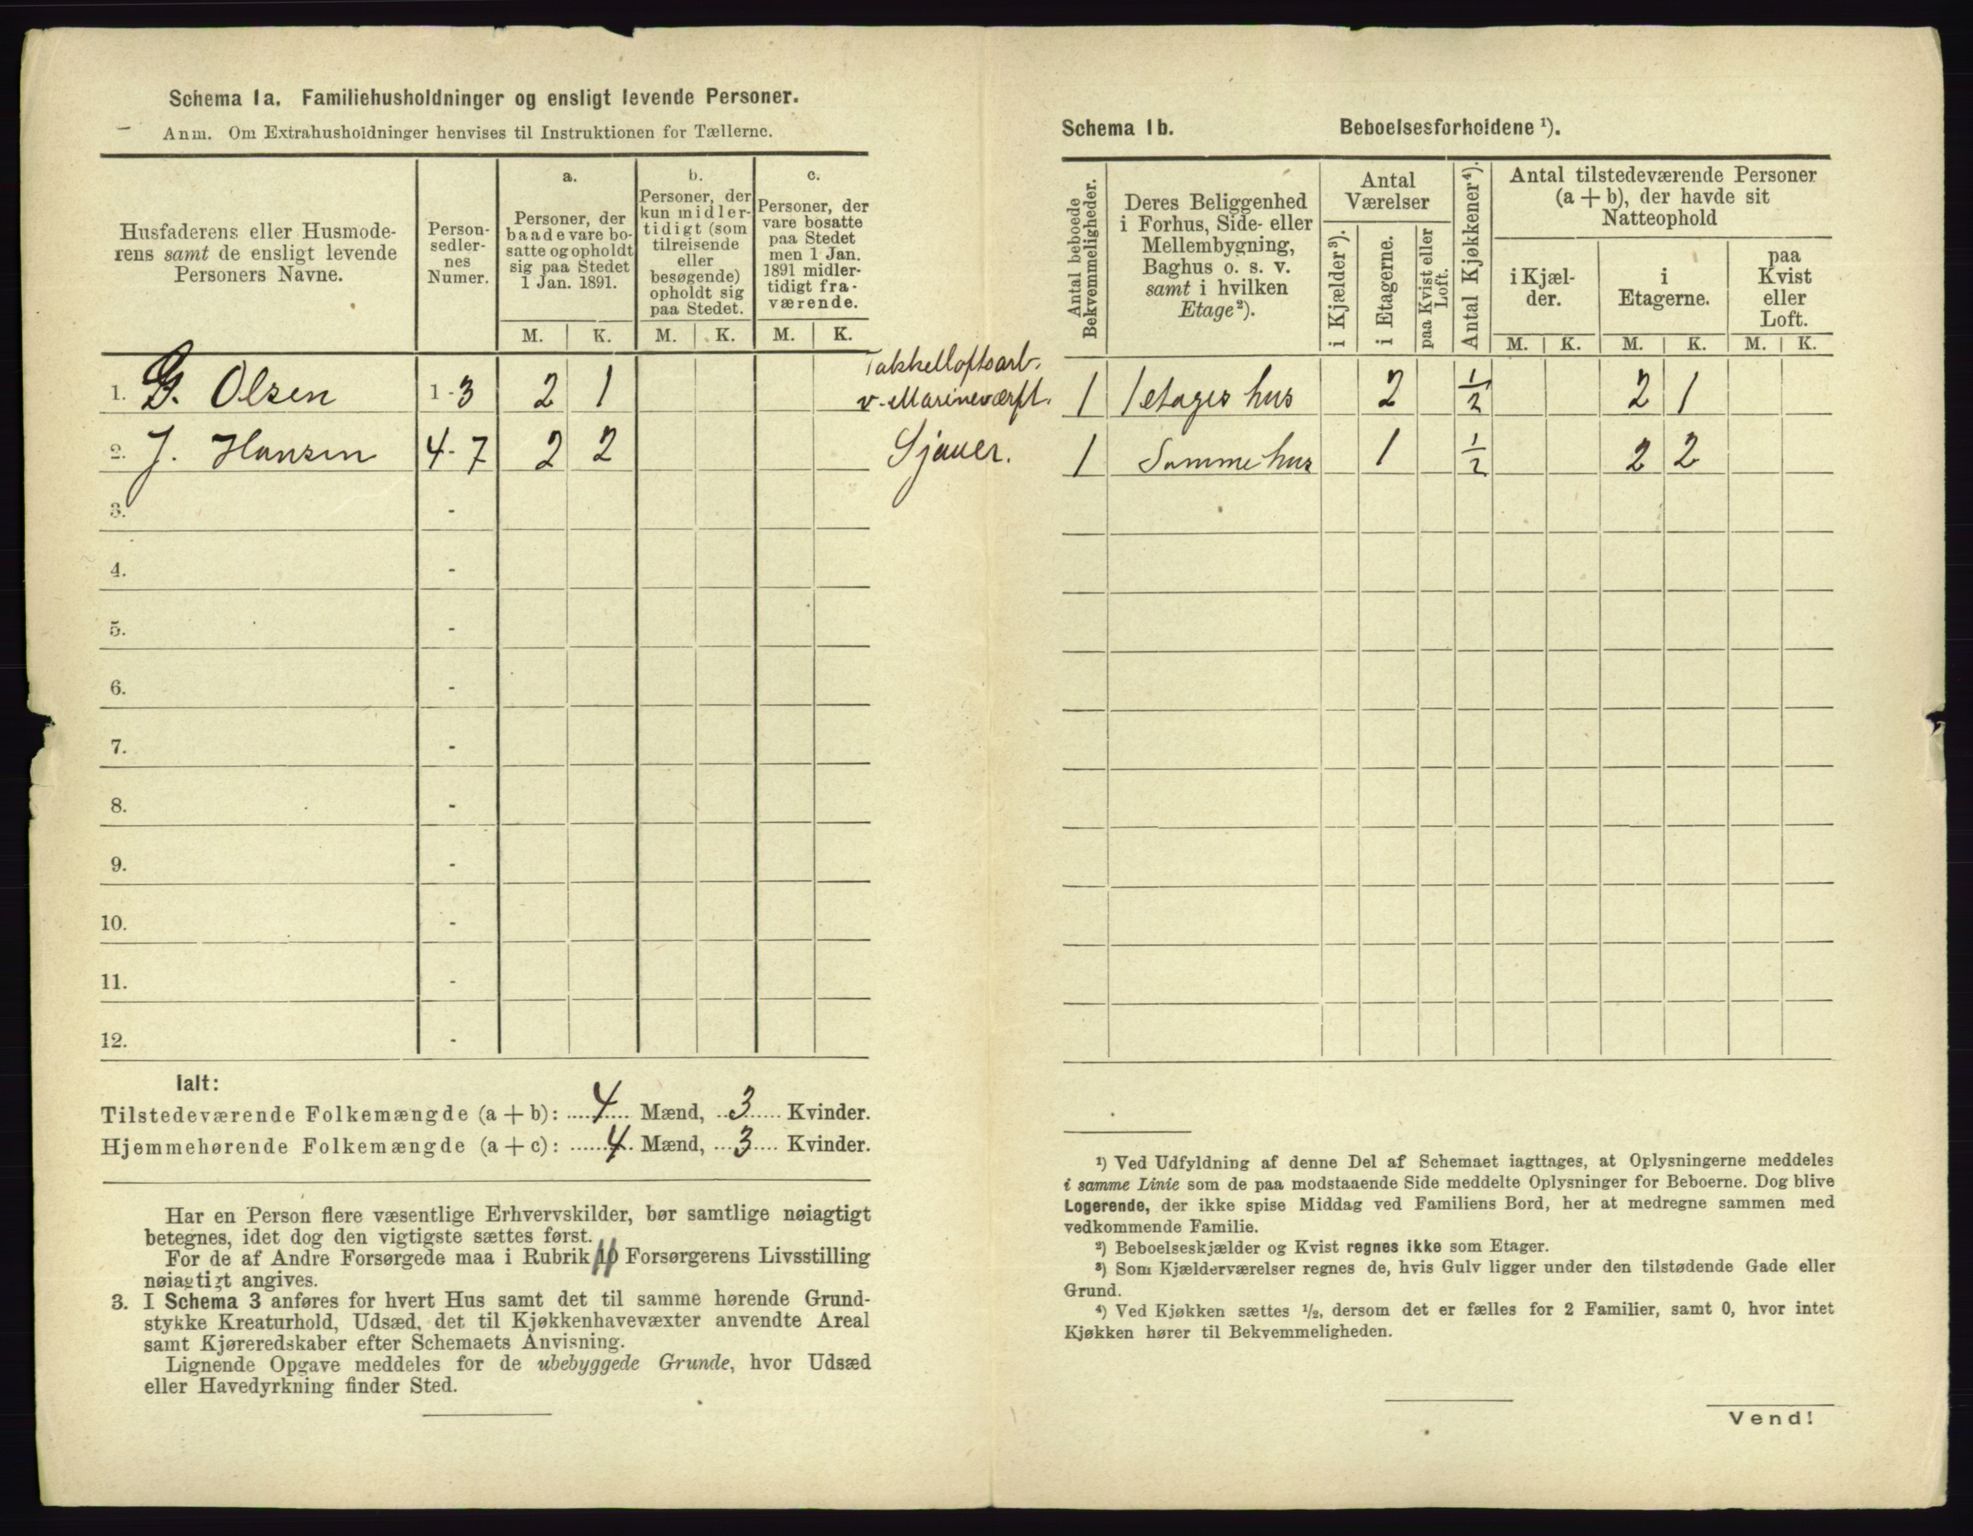 Schema 1a. Familiehusholdninger og ensligt levende Personer.
Anm. Om Extrahusholdninger henvises til Instruktionen for Tællerne.
Husfaderens eller Husmode-
rens samt de ensligt levende
Personers Navne.
Person-
sedler-
nes
Numer.
a.
Personer, der
baade vare bo-
satte og opholdt
sig paa Stedet
1 Jan. 1891.
b.
Personer, der
kun midler-
tidigt (som
tilreisende
eller
besøgende)
opholdt sig
paa Stedet.
c.
Personer, der
vare bosatte
paa Stedet
men 1 Jan.
1891 midler-
tidigt fra-
værende.
M. K. M. K. M. K.
1. G. Olsen 1-3 2 1 Takkelloftsarb.
v. Marineværft.
2. J. Hansen 4-7 2 2 Sjauer.
3. -
4. -
5. -
6. -
7. -
8. -
9. -
10. -
11. -
12. -
Ialt:
Tilstedeværende Folkemængde (a + b): 4 Mænd, 3 Kvinder.
Hjemmehørende Folkemængde (a + c): 4 Mænd, 3 Kvinder.
Har en Person flere væsentlige Erhvervskilder, bør samtlige nøiagtigt
betegnes, idet dog den vigtigste sættes først.
For de af Andre Forsørgede maa i Rubrik Forsørgerens Livsstilling
nøiagtigt angives.
3. I Schema 3 anføres for hvert Hus samt det til samme hørende Grund-
stykke Kreaturhold, Udsæd, det til Kjøkkenhavevæxter anvendte Areal
samt Kjøreredskaber efter Schemaets Anvisning.
Lignende Opgave meddeles for de ubebyggede Grunde, hvor Udsæd
eller Havedyrkning finder Sted.
Schema 1b. Beboelsesforholdene ¹).
Antal beboede
Bekvemmeligheder.
Deres Beliggenhed
i Forhus, Side- eller
Mellembygning,
Baghus o. s. v.
samt i hvilken
Etage²).
Antal
Værelser
i Kjælder³).
i Etagerne.
paa Kvist eller
Loft.
Antal Kjøkkener⁴).
Antal tilstedeværende Personer
(a + b), der havde sit
Natteophold
i Kjæl-
der.
i
Etagerne.
paa
Kvist
eller
Loft.
M. K. M. K. M. K.
1 1 etages hus 2 1/2 2 1
1 Samme hus 1 1/2 2 2
¹) Ved Udfyldning af denne Del af Schemaet iagttages, at Oplysningerne meddeles
i samme Linie som de paa modstaaende Side meddelte Oplysninger for Beboerne. Dog blive
Logerende, der ikke spise Middag ved Familiens Bord, her at medregne sammen med
vedkommende Familie.
²) Beboelseskjælder og Kvist regnes ikke som Etager.
³) Som Kjælderværelser regnes de, hvis Gulv ligger under den tilstødende Gade eller
Grund.
⁴) Ved Kjøkken sættes ½, dersom det er fælles for 2 Familier, samt 0, hvor intet
Kjøkken hører til Bekvemmeligheden.
Vend!